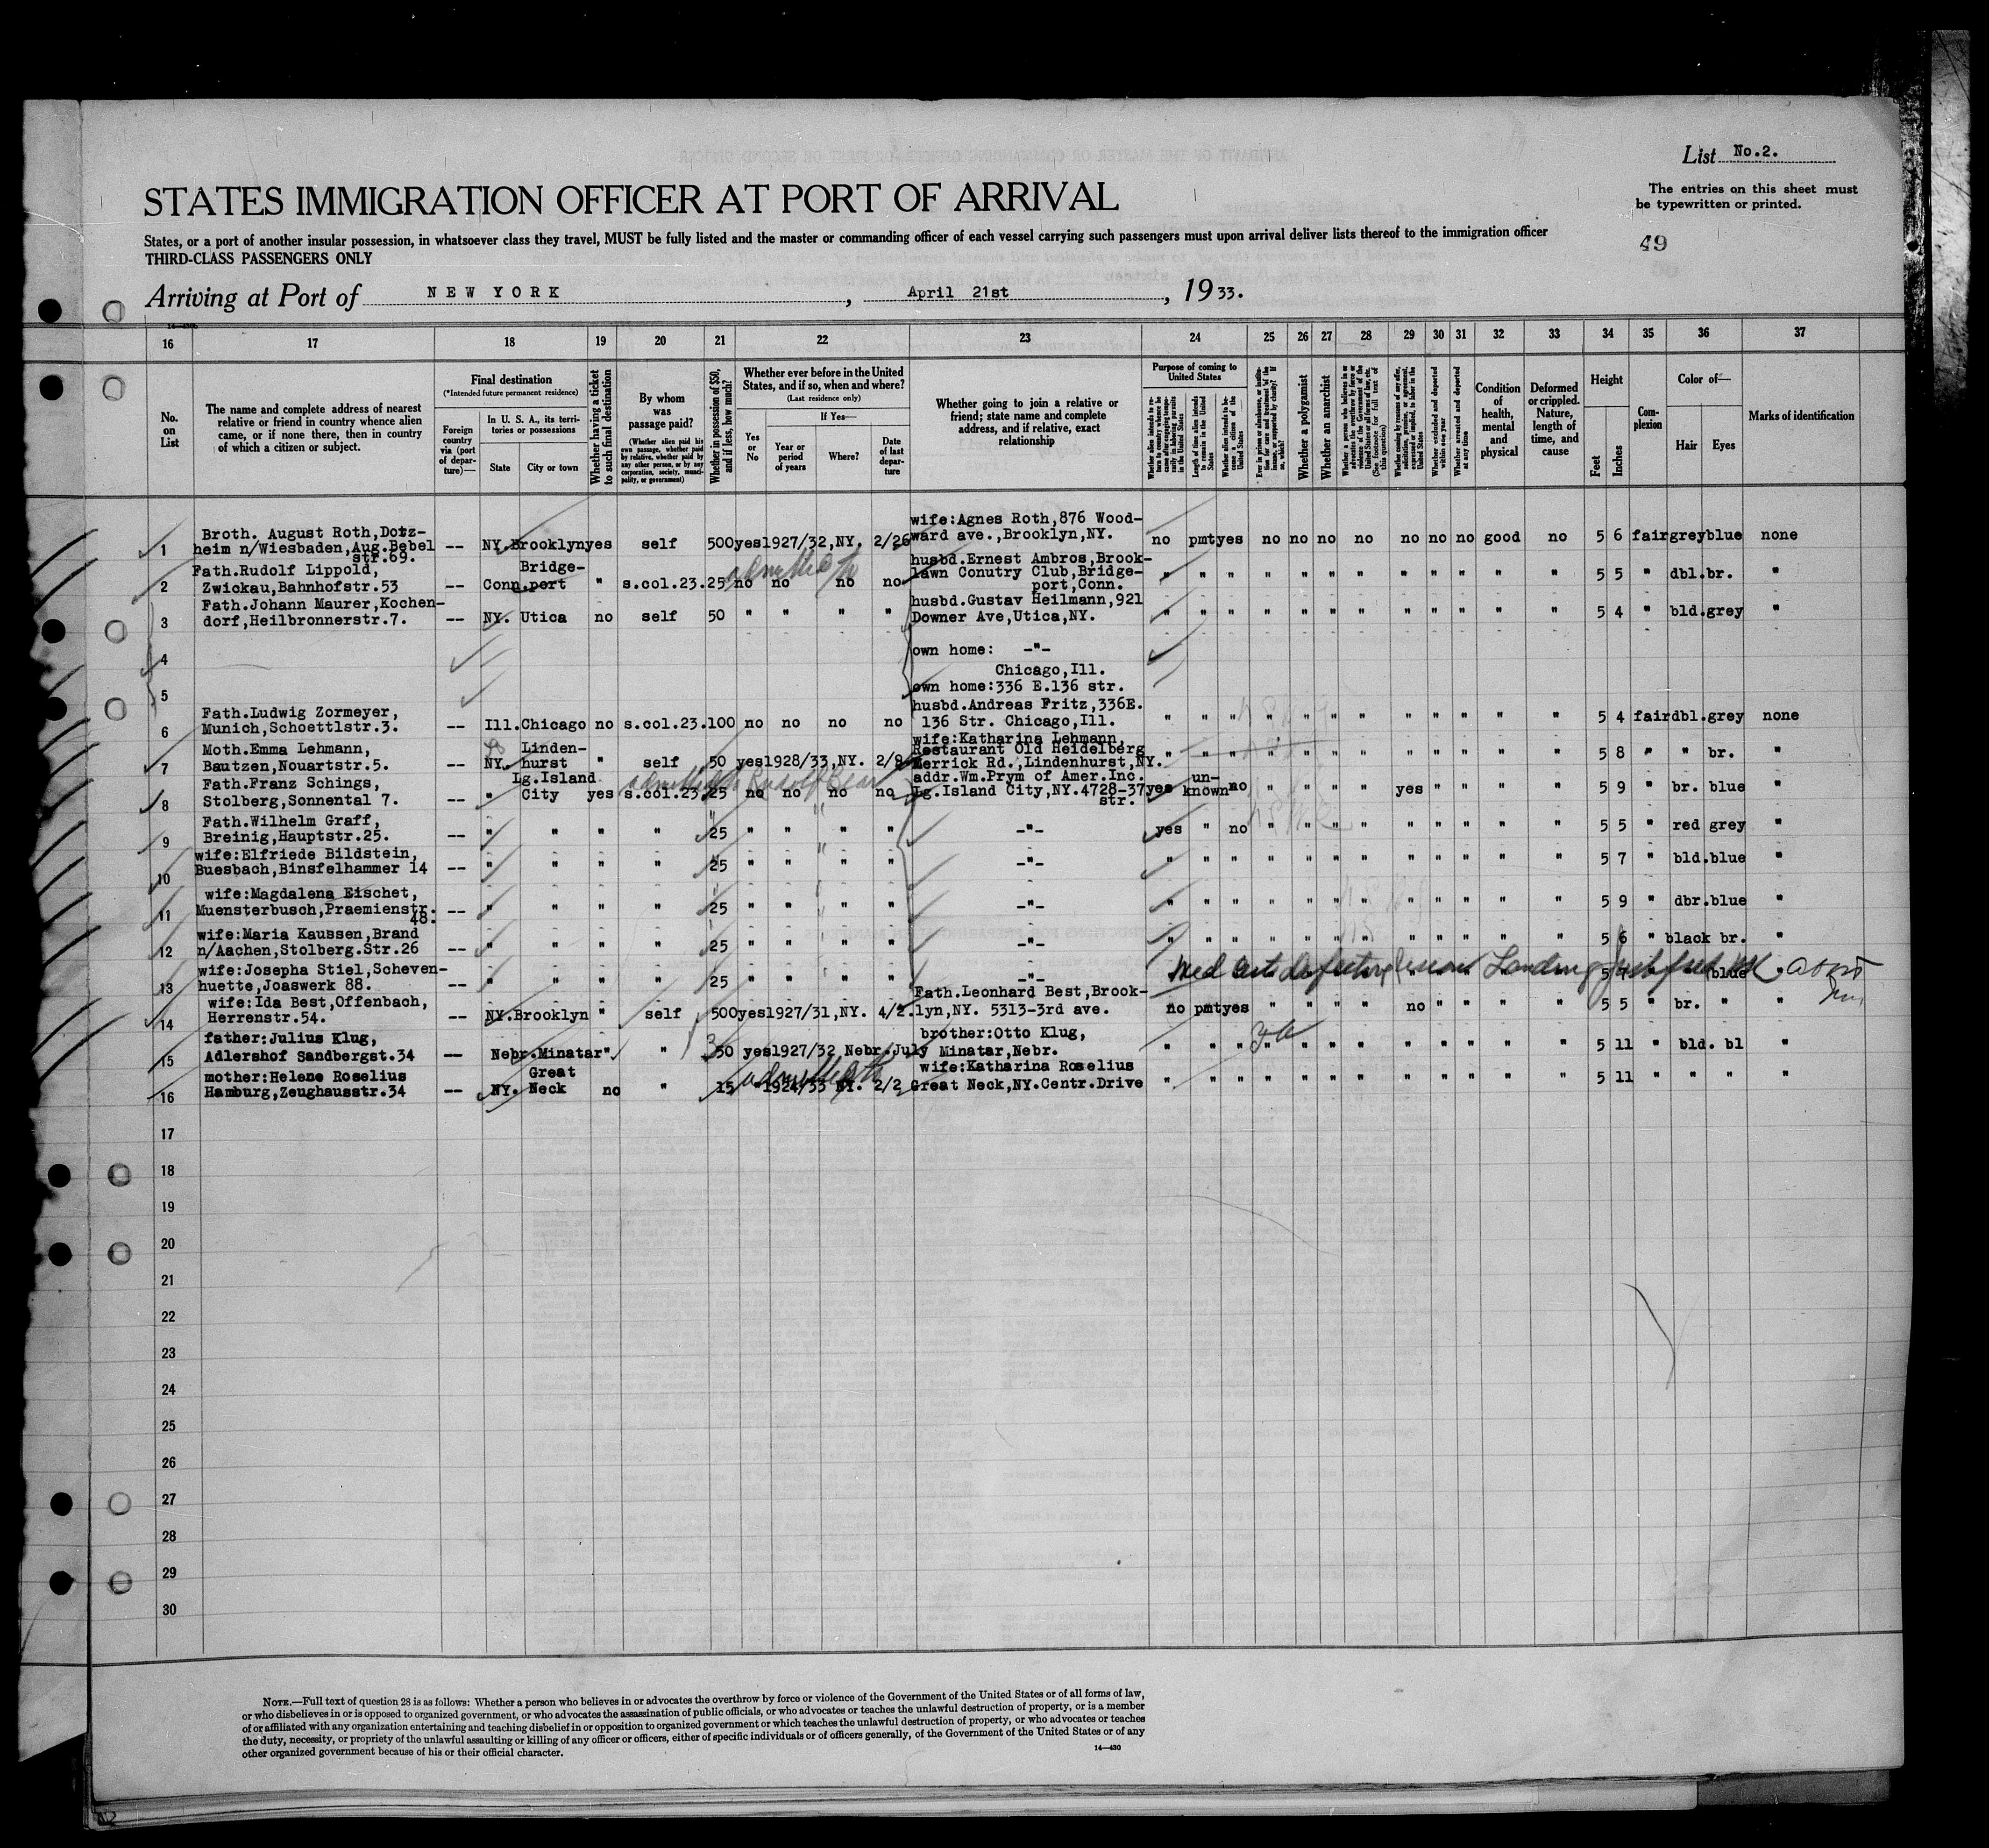 List No.2.
STATES IMMIGRATION OFFICER AT PORT OF ARRIVAL
The entries on this sheet must
be typewritten or printed.
States, or a port of another insular possession, in whatsoever class they travel, MUST be fully listed and the master or commanding officer of each vessel carrying such passengers must upon arrival deliver lists thereof to the immigration officer
THIRD-CLASS PASSENGERS ONLY
49
Arriving at Port of NEW YORK, April 21st, 1933.
16 17 18 19 20 21 22 23 24 25 26 27 28 29 30 31 32 33 34 35 36 37
No. on List
The name and complete address of nearest relative or friend in country whence alien came, or if none there, then in country of which a citizen or subject.
Final destination
(*Intended future permanent residence)
Foreign country via (port of departure)—
In U. S. A., its territories or possessions
State
City or town
Whether having a ticket to such final destination
By whom was passage paid?
(Whether alien paid his own passage, whether paid by relative, whether paid by any other person, or by any corporation, society, municipality, or government)
Whether in possession of $50, and if less, how much?
Whether ever before in the United States, and if so, when and where?
(Last residence only)
Yes or No
If Yes—
Year or period of years
Where?
Date of last departure
Whether going to join a relative or friend; state name and complete address, and if relative, exact relationship
Purpose of coming to United States
Length of time alien intends to remain in the United States
Whether alien intends to become a citizen of the United States
Whether a polygamist
Whether an anarchist
Whether excluded and deported within one year
Whether arrested and deported at any time
Condition of health, mental and physical
Deformed or crippled. Nature, length of time, and cause
Height
Feet
Inches
Complexion
Color of—
Hair
Eyes
Marks of identification
1 Broth. August Roth,Dotz-
heim n/Wiesbaden,Aug.Bebel
str.69. -- NY. Brooklyn yes self 500 yes 1927/32,NY. 2/26 wife:Agnes Roth,876 Wood-
ward ave.,Brooklyn,NY. no pmt yes no no no no no no no good no 5 6 fair grey blue none
2 Fath.Rudolf Lippold,
Zwickau,Bahnhofstr.53 -- Conn. Bridge-
port " s.col.23. 25 no no no no husbd.Ernest Ambros,Brook-
lawn Conutry Club,Bridge-
port,Conn. " " " " " " " " " " " " 5 5 " dbl. br. "
3 Fath.Johann Maurer,Kochen-
dorf,Heilbronnerstr.7. -- NY. Utica no self 50 " " " " husbd.Gustav Heilmann,921
Downer Ave,Utica,NY. " " " " " " " " " " " " 5 4 " bld. grey "
4 own home: -"-
Chicago,Ill.
5 own home:336 E.136 str.
6 Fath.Ludwig Zormeyer,
Munich,Schoettlstr.3. -- Ill. Chicago no s.col.23. 100 no no no no husbd.Andreas Fritz,336E.
136 Str. Chicago,Ill. " " " " " " " " " " " " 5 4 fair dbl. grey none
7 Moth.Emma Lehmann,
Bautzen,Nouartstr.5. -- NY. Linden-
hurst " self 50 yes 1928/33,NY. wife:Katharina Lehmann,
Restaurant Old Heidelberg
Merrick Rd.,Lindenhurst,NY. " " " " " " " " " " " 5 8 " " br. "
8 Fath.Franz Schings,
Stolberg,Sonnental 7. -- " Lg.Island
City yes s.col.23. 25 no no no no addr.Wm.Prym of Amer.Inc.
Lg.Island City,NY.4728-37
str. yes un-
known no " " " " yes " " " " 5 9 " br. blue "
9 Fath.Wilhelm Graff,
Breinig,Hauptstr.25. -- " " " " 25 " " " " -"- yes " no " " " " " " " " " 5 5 " red grey "
10 wife:Elfriede Bildstein,
Buesbach,Binsfelhammer 14 -- " " " " 25 " " " " -"- " " " " " " " " " " " " 5 7 " bld. blue "
11 wife:Magdalena Eischet,
Muensterbusch,Praemienstr.
48. -- " " " " 25 " " " " -"- " " " " " " " " " " " " 5 9 " dbr. blue "
12 wife:Maria Kaussen,Brand
n/Aachen,Stolberg.Str.26 -- " " " " 25 " " " " -"- " " " " " " " " " " " " 5 6 " black br. "
13 wife:Josepha Stiel,Scheven-
huette,Joaswerk 88. -- " " " " 25 " " " " -"- Med cert defective vision Landing 5 blue
14 wife:Ida Best,Offenbach,
Herrenstr.54. -- NY. Brooklyn " self 500 yes 1927/31,NY. 4/2. Fath.Leonhard Best,Brook-
lyn,NY. 5313-3rd ave. no pmt yes " " " " no " " " " 5 5 " br. " "
15 father:Julius Klug,
Adlershof Sandbergst.34 -- Nebr. Minatar " " 50 yes 1927/32 Nebr. July brother:Otto Klug,
Minatar,Nebr. " " " " " " " " " " " 5 11 " bld. bl "
16 mother:Helene Roselius
Hamburg,Zeughausstr.34 -- NY. Great
Neck no " 15 " 1924/33 NY. 2/2 wife:Katharina Roselius
Great Neck,NY.Centr.Drive " " " " " " " " " " " " 5 11 " " " "
17
18
19
20
21
22
23
24
25
26
27
28
29
30
NOTE.—Full text of question 28 is as follows: Whether a person who believes in or advocates the overthrow by force or violence of the Government of the United States or of all forms of law,
or who disbelieves in or is opposed to organized government, or who advocates the assassination of public officials, or who advocates or teaches the unlawful destruction of property, or is a member
of or affiliated with any organization entertaining and teaching disbelief in or opposition to organized government or which teaches the unlawful destruction of property, or who advocates or teaches
the duty, necessity, or propriety of the unlawful assaulting or killing of any officer or officers, either of specific individuals or of officers generally, of the Government of the United States or of any
other organized government because of his or their official character.
14—430